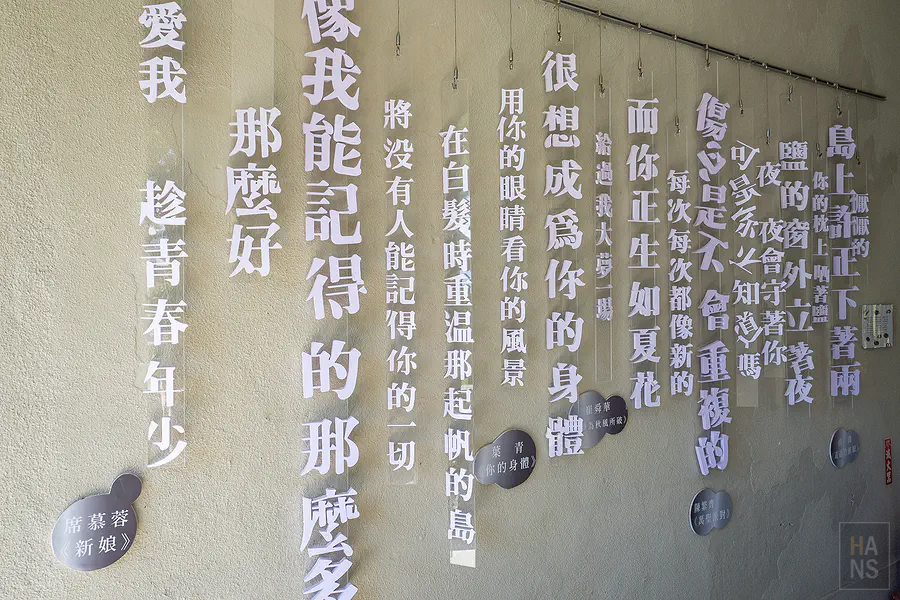 島上許正下著雨
你的枕上晒著鹽
鹽的窗外立著夜
夜 夜會守著你
知道嗎
傷口是不會重複的
每次每次都像新的
陳繁齊
而你正生如夏花
給過我大夢一場
崔舜華
為秋風所破》
很想成爲你的身體
用你的眼睛看你的風景
葉青
《你的身體》
在白髮時重溫那起帆的島
將沒有人能記得你的一切
像我能記得的那麼多
那麼好
愛我 趁青春年少
席慕蓉
《新娘》
HANS